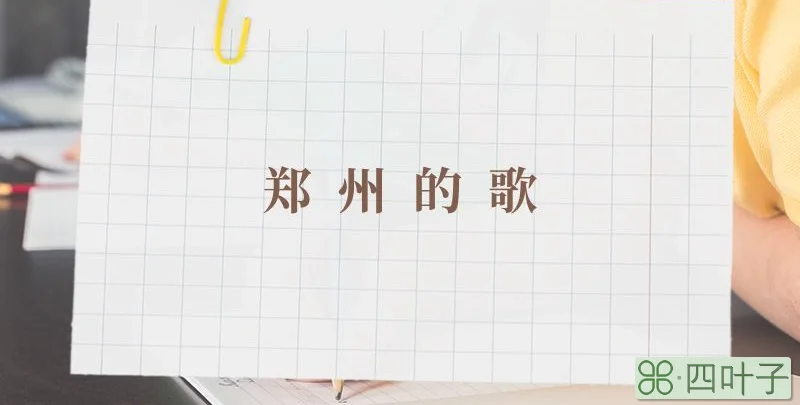 郑州的歌
四叶子